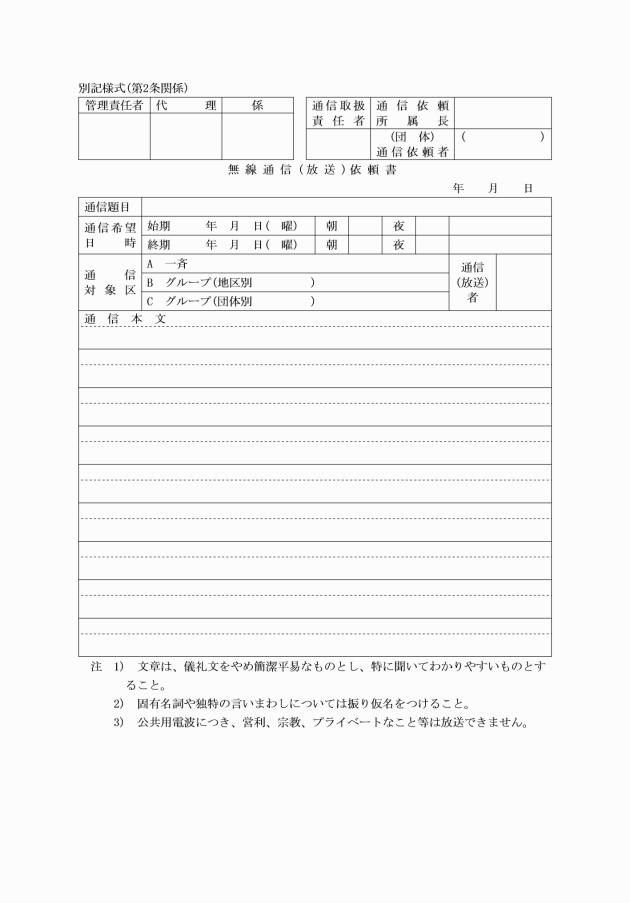 別記様式(第2条関係)
管理責任者 代 理 係
通信取扱責任者 通信依頼所属長
(団 体)通信依頼者 ( )
無線通信(放送)依頼書
年 月 日
通信題目
通信希望日時 始期 年 月 日( 曜) 朝 夜
終期 年 月 日( 曜) 朝 夜
通信対象区 A 一斉
B グループ(地区別 )
C グループ(団体別 )
通信(放送)者
通信本文
注 1) 文章は、儀礼文をやめ簡潔平易なものとし、特に聞いてわかりやすいものとす
ること。
2) 固有名詞や独特の言いまわしについては振り仮名をつけること。
3) 公共用電波につき、営利、宗教、プライベートなこと等は放送できません。